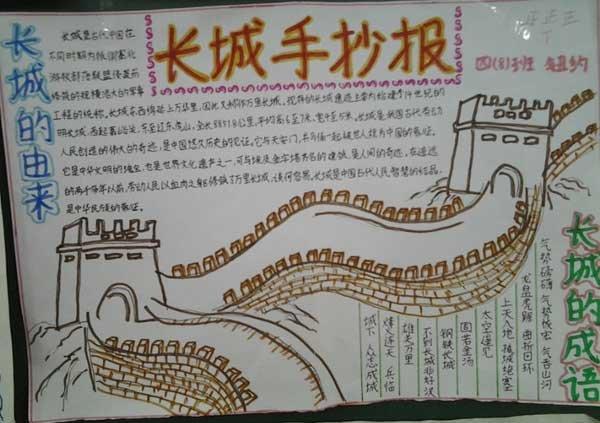 长城手抄报
四(8)班
长城的由来
长城是古代中国在
不同时期为抵御塞北
游牧部落联盟侵袭而
修筑的规模浩大的军事
工程的统称。长城东西绵延上万华里,因此又称作万里长城。现存的长城遗迹主要为始建于14世纪的
明长城,西起嘉峪关,东至辽东虎山,全长8851.8公里,平均高6至7米,宽4至5米。长城是我国古代劳动
人民创造的伟大的奇迹,是中国悠久历史的见证。它与天安门,兵马俑一起被世人视为中国的象征。
它是中华文明的瑰宝,也是世界文化遗产之一,可与埃及金字塔齐名的建筑,是人间的奇迹,在遥远
的两千多年以前,劳动人民以血肉之躯修筑了万里长城,谈何容易。长城是中国古代人民智慧的结晶,
是中华民族的象征。
长城的成语
气势磅礴 气势恢宏 气吞山河
龙盘虎踞 曲折回环
上天入地
太空遥见
固若金汤
钢铁长城
不到长城非好汉
雄关万里
烽火连天 兵临
城下 众志成城